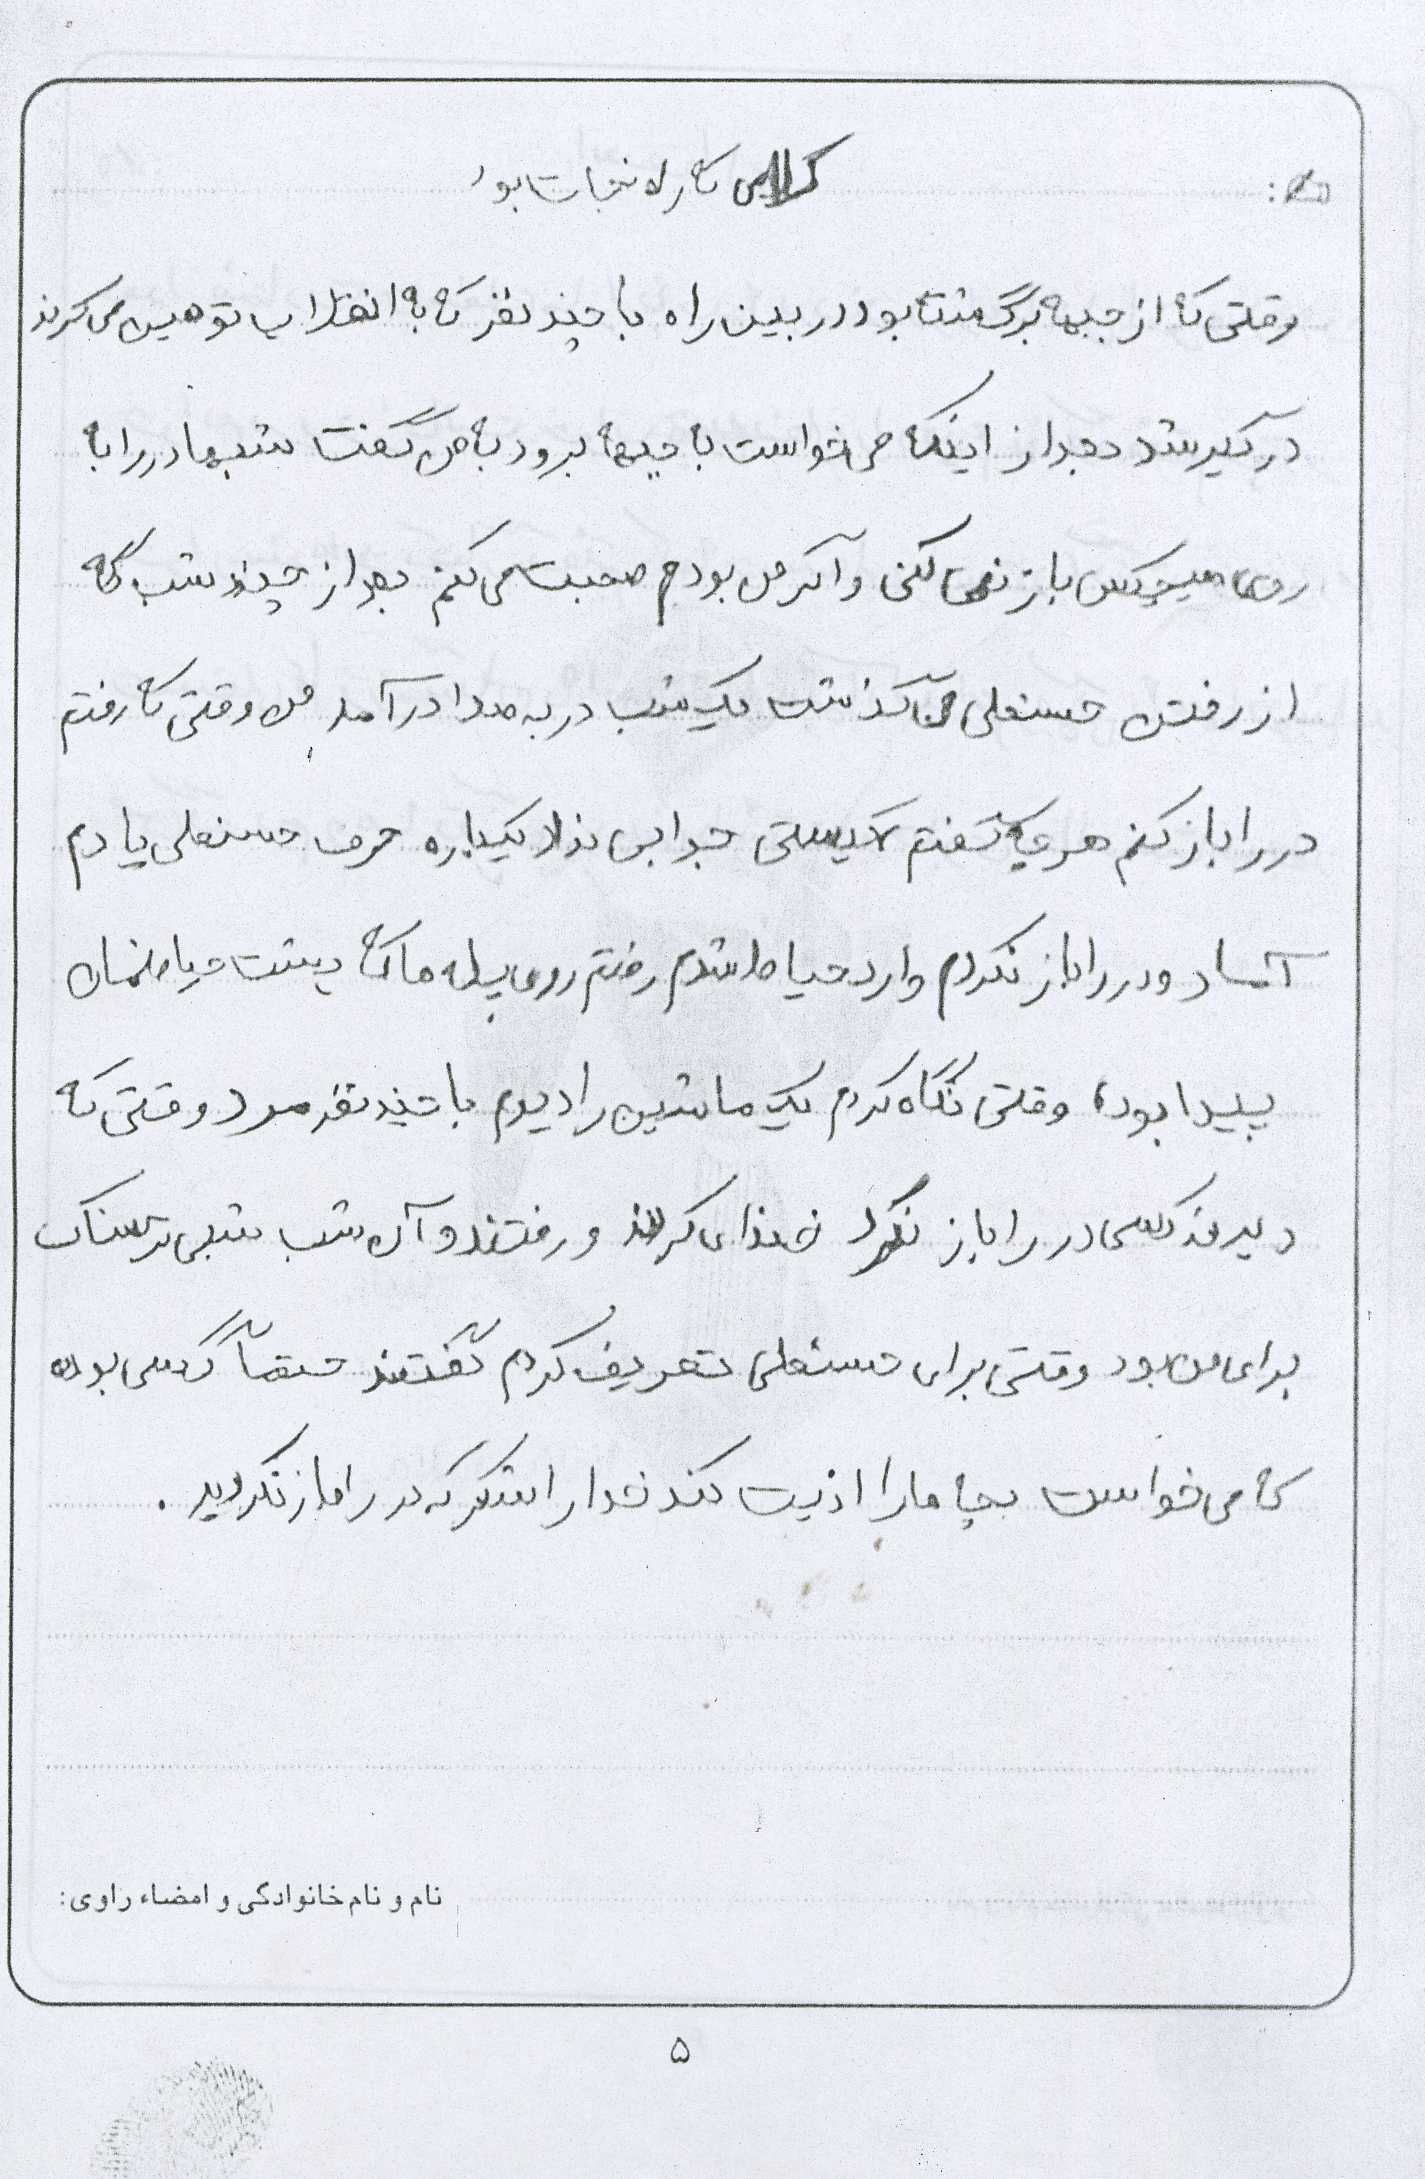 کلامی که راه نجات بود
وقتی که از جبهه برگشته بود در بین راه با چند نفر که به انقلاب توهین می کردند
درگیر شد بعد از اینکه می خواست به جبهه برود به من گفت شبها در را به
روی هیچکس باز نمی کنی و اگر من بودم صحبت می کنم بعد از چند شب که
از رفتن حسنعلی گذشت یک شب در به صدا در آمد من وقتی که رفتم
در را باز کنم هر چه گفتم کیستی جوابی نداد یکباره حرف حسنعلی یادم
آمد و در را باز نکردم وارد حیاط شدم رفتم روی پله ها که پشت حیاطمان
پیدا بود، وقتی نگاه کردم یک ماشین را دیدم با چند نفر مرد وقتی که
دیدند کسی در را باز نکرد خنده ای کردند و رفتند و آن شب شبی ترسناک
برای من بود وقتی برای حسنعلی تعریف کردم گفتند حتماً کسی بوده
که می خواست بچه ما را اذیت کند خدا را شکر که در را باز نکردید.
نام و نام خانوادگی و امضاء راوی:
۵